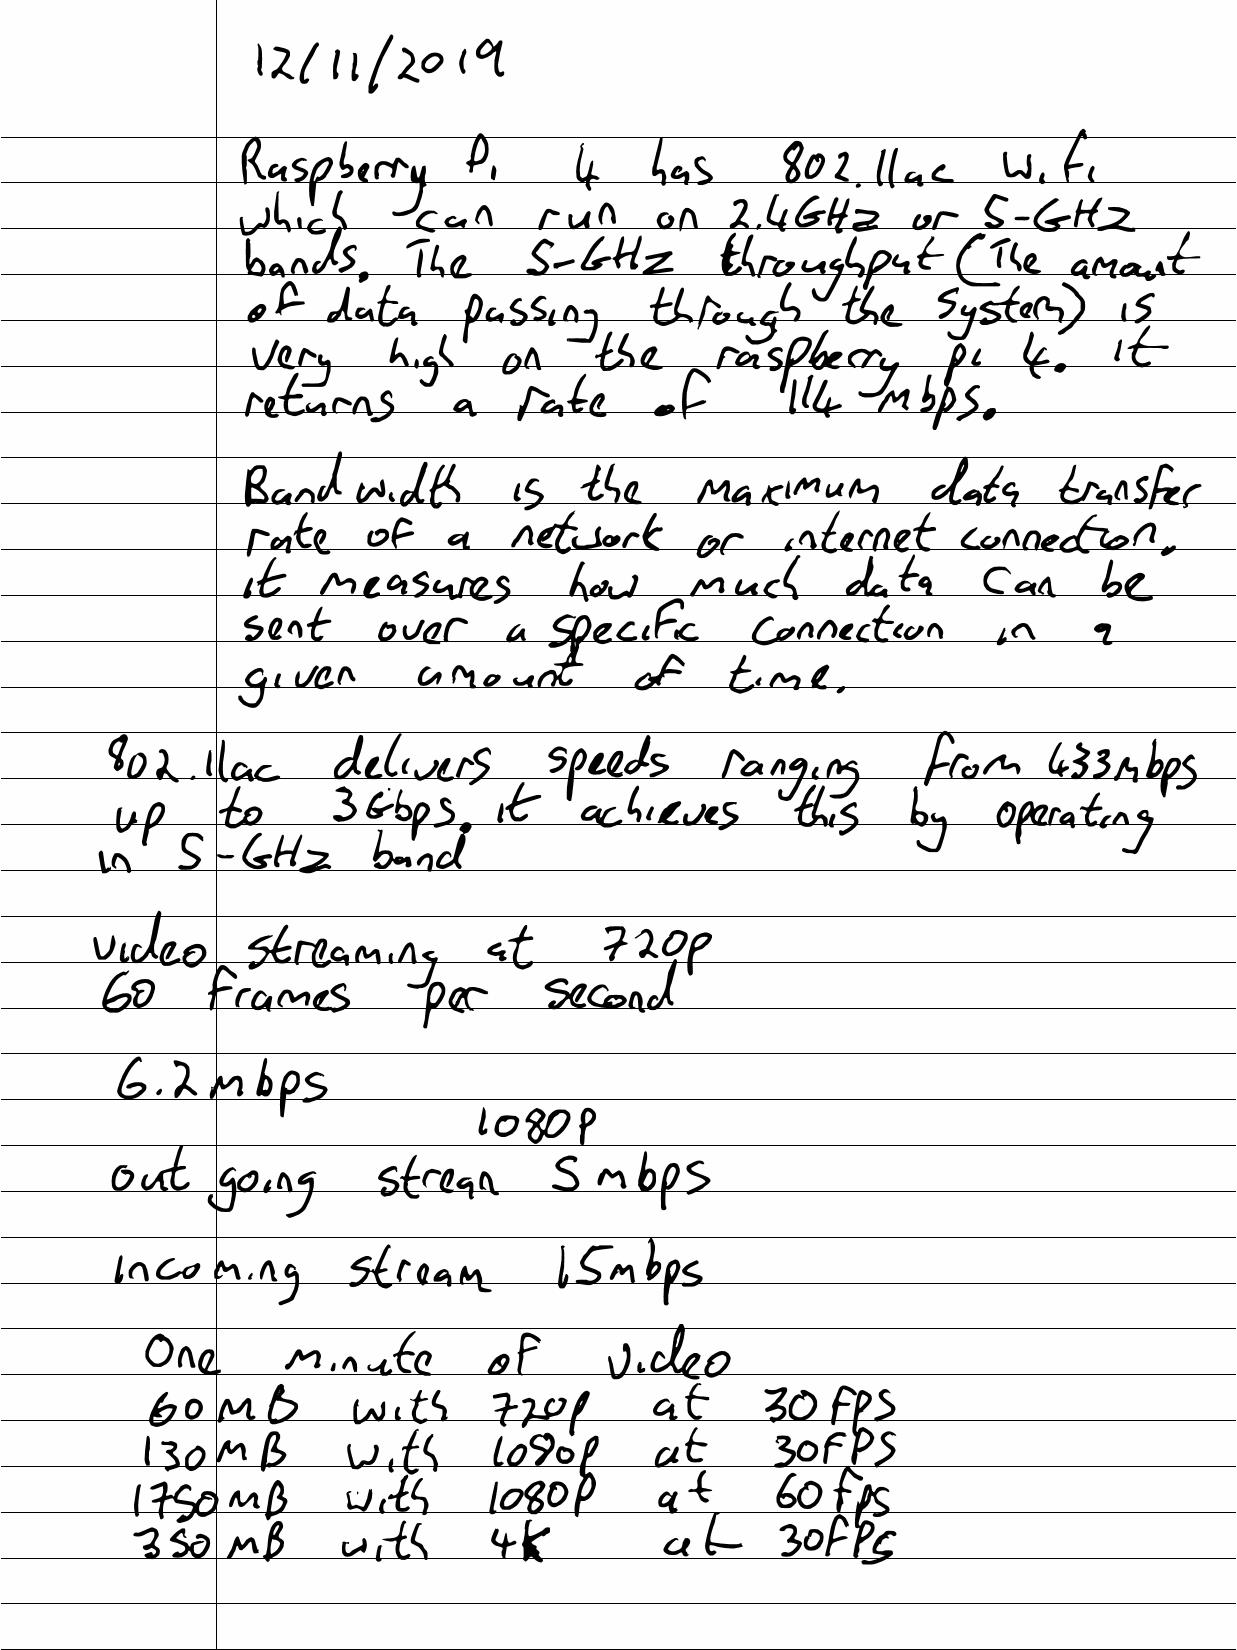 12/11/2019
Raspberry Pi 4 has 802.11ac Wifi
which can run on 2.4GHz or 5-GHz
bands. The 5-GHz throughput (The amount
of data passing through the system) is
very high on the raspberry pi 4. it
returns a rate of 114 mbps.
Bandwidth is the maximum data transfer
rate of a network or internet connection.
it measures how much data can be
sent over a specific connection in a
given amount of time.
802.11ac delivers speeds ranging from 433mbps
up to 3Gbps. it achieves this by operating
in 5-GHz band
video streaming at 720p
60 frames per second
6.2mbps
1080p
outgoing stream 5mbps
incoming stream 15mbps
One minute of video
60MB with 720p at 30FPS
130MB with 1080p at 30FPS
1750MB with 1080P at 60fps
350MB with 4k at 30FPS